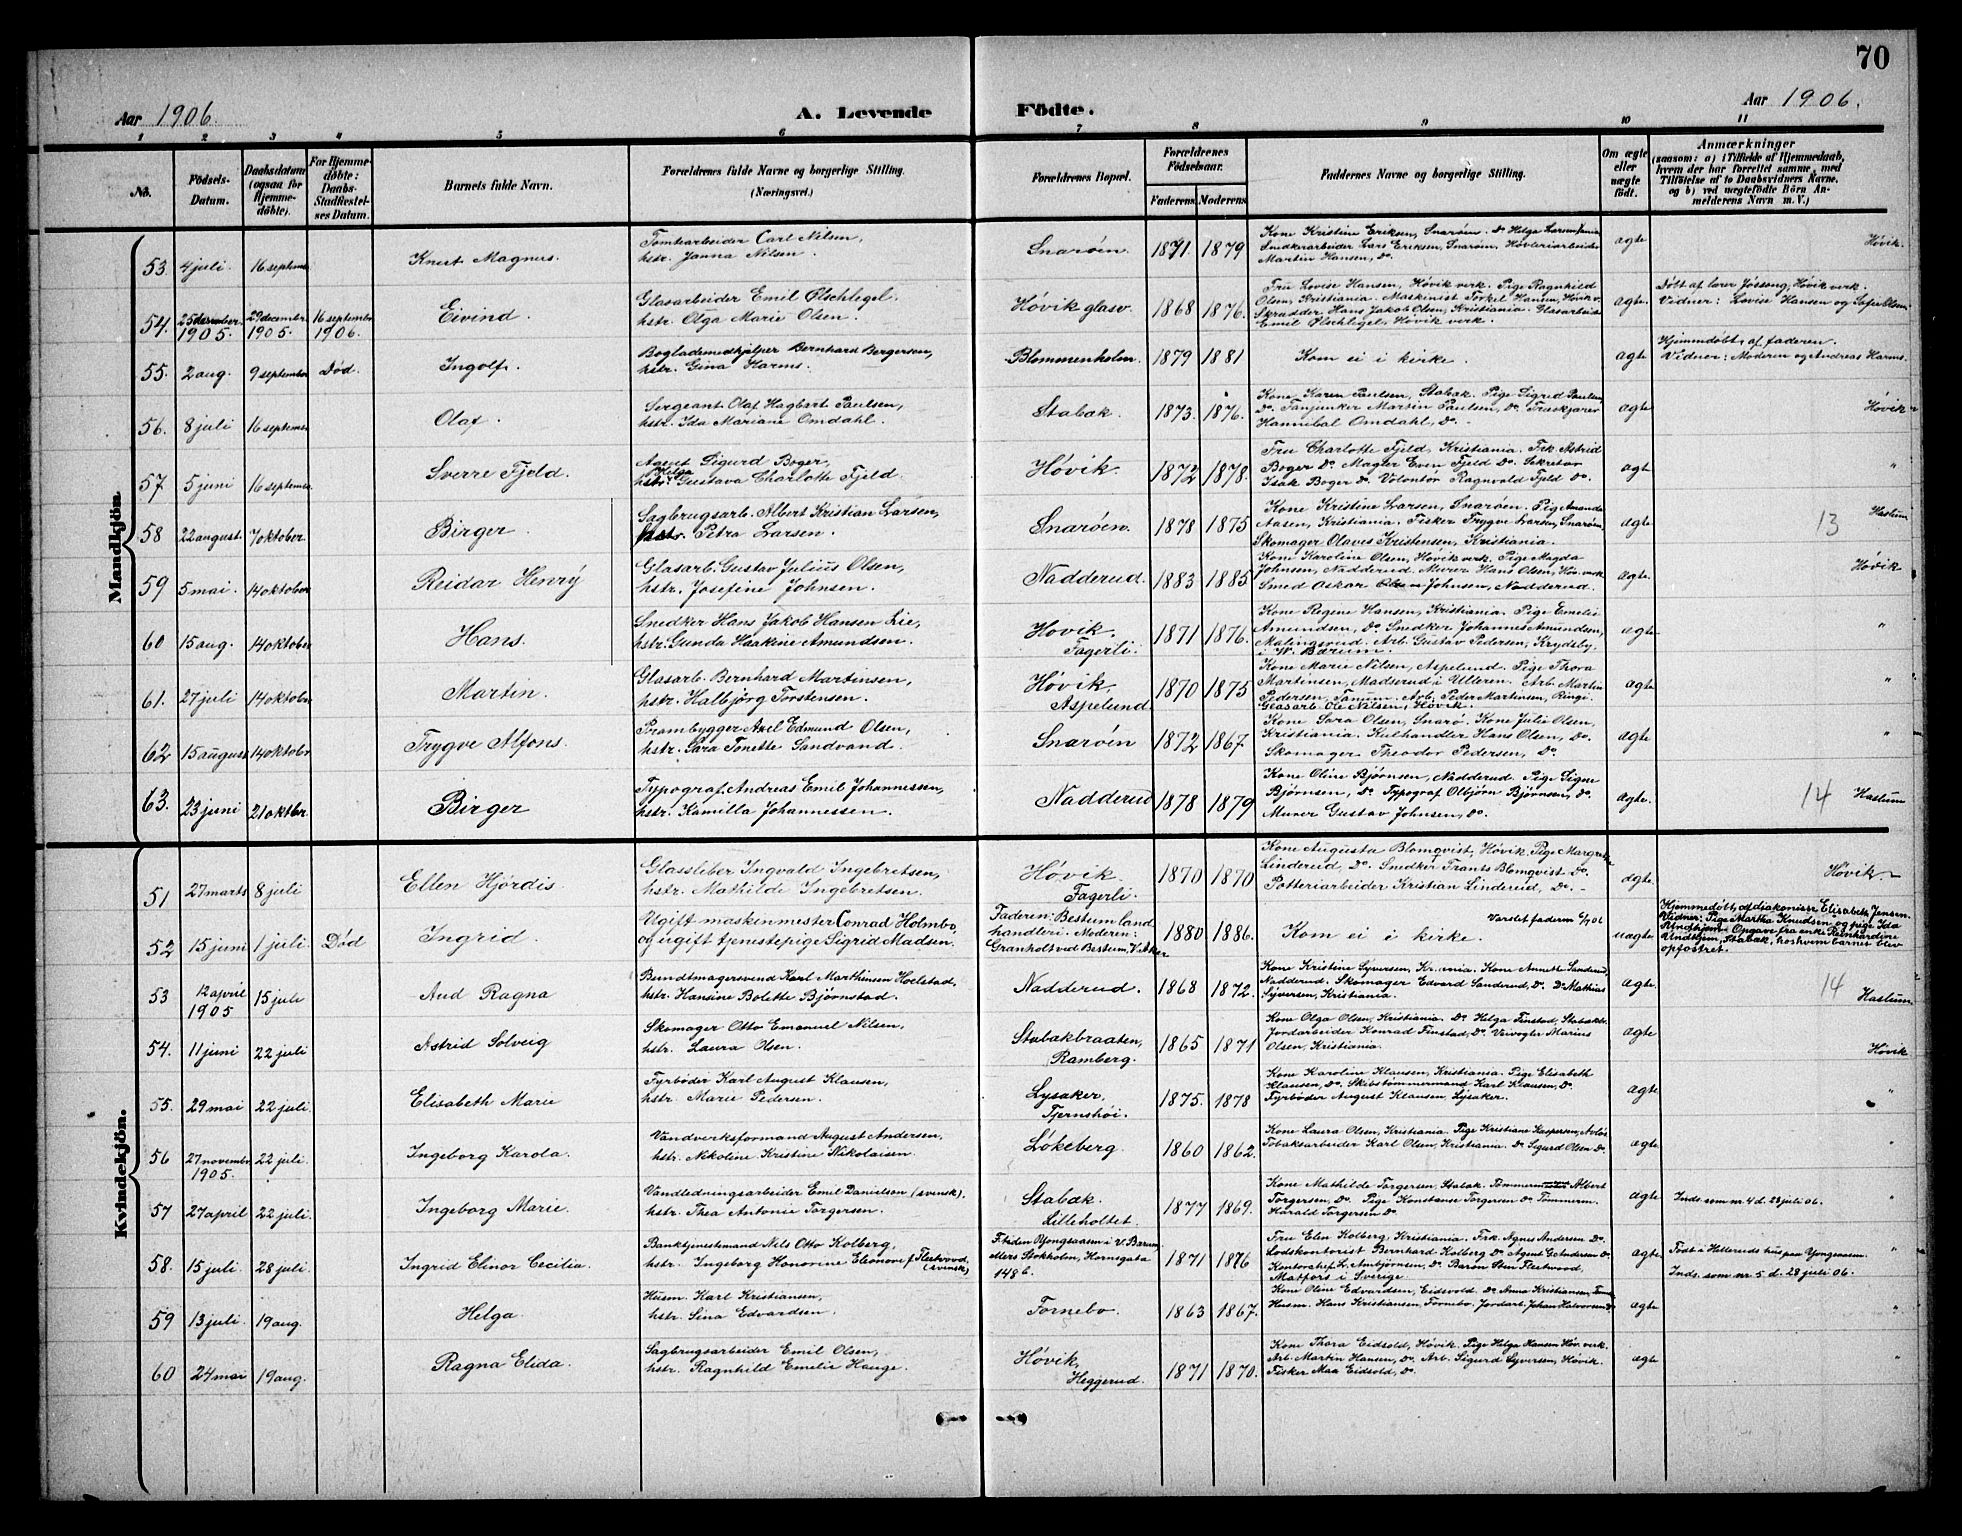 70
Aar 1906.
A. Levende
Födte.
Aar 1906.
1 2 3 4 5 6 7 8 9 10 11
No.
Födsels-Datum.
Daabsdatum (ogsaa for Hjemmedöbte).
For Hjemmedöbte: Daabs-Stadfæstelses Datum.
Barnets fulde Navn.
Forældrenes fulde Navne og borgerlige Stilling.
(Næringsvei.)
Forældrenes Bopæl.
Forældrenes Födselsaar.
Faderens. Moderens.
Faddernes Navne og borgerlige Stilling.
Om ægte eller uægte födt.
Anmærkninger
(saasom: a) i Tilfælde af Hjemmedaab, hvem der har forrettet samme, med Tilföielse af to Daabsvidners Navne, og b) ved uægtefödte Börn Anmelderens Navn m. V.)
Mandkjön
53. 4 juli. 16 septemr. Knut Magnus. Tomtearbeider Carl Nilsen, hstr. Janna Nilsen. Snarøen. 1871 1879 Kone Kristine Eriksen, Snarøen. Do Helga Larsen, Snedkerarbeider Lars Eriksen, Snarøen, Høvleriarbeider Martin Hansen, do. ægte Høvik.
54. 25 december 1905. 29 december 1905. 16 septembr 1906. Eivind. Glasarbeider Emil Ølschlegel. hstr. Olga Marie Olsen. Høvik glasv. 1868 1876. Fru Lovise Hansen, Høvik verk. Pige Ragnhild Olsen, Kristiania. Maskinist Torkel Hansen, Høvik v. Skrædder Hans Jakob Olsen, Kristiania. Glasarbeid. Emil Ølschlegel, Høvik verk. ægte. Døbt af lærer Jøssong, Høvik verk. Vidner: Lovise Hansen og Sofie Olsen.
55. 2 aug. 9 september Død. Ingolf. Boglademedhjelper Bernhard Bergersen, hstr. Gina Harms. Blommenholm. 1879 1881 Kom ei i kirke. ægte Hjemmedøbt af faderen. Vidner: Moderen og Andreas Harms.
56. 8 juli 16 septemr Olaf. Sergeant Olaf Hagbart Paulsen, hstr. Ida Mariane Omdahl. Stabæk. 1873. 1876. Kone Karen Paulsen, Stabæk. Pige Sigrid Paulsen, Do. Fanjunker Martin Paulsen, do. Hannibal Omdahl, do. ægte Høvik
57. 5 juni 16 septemr. Sverre Fjeld. Agent Sigurd Boger, hstr. Helga Gustava Charlotte Fjeld. Høvik. 1872 1878. Fru Charlotte Fjeld, Kristiania. Frk. Astrid Boger Do. Mægler Even Fjeld Do. Sekretær Isak Boger Do. Volontør Ragnvald Fjeld Do. ægte "
58 22 august. 7 oktober. Birger. Sagbrugsarb. Albert Kristian Larsen, hstr. Petra Larsen. Snarøen. 1878 1875 Kone Kristine Larsen, Snarøen. Pige Amanda Aasen, Kristiania. Fisker Trygve Larsen, Snarøen, Skomager Olaves Kristensen, Kristiania. ægte. 13 Haslum
59 5 mai. 14 oktober Reidar Henry Glasarb. Gustav Julius Olsen, hstr. Josefine Johnsen. Nadderud. 1883 1885 Kone Karoline Olsen, Høvik verk. Pige Magda Johnsen, Nadderud. Murer Hans Olsen, Høv. verk Smed Oskar Johnsen, Nadderud. ægte. Høvik
60 15 aug. 14 oktober Hans. Snedker Hans Jakob Hansen Lie, hstr. Gunda Haakine Amundsen. Høvik. Fagerli. 1871 1876. Kone Regine Hansen, Kristiania. Pige Emelie Amundsen, Do. Snedker Johannes Amundsen, Malingsrud. Arb. Gustav Pedersen, Krydsby. i W. Bærum. ægte "
61. 27 juli 14 oktobr Martin. Glasarb. Bernhard Martinsen, hstr. Halbjørg Torstensen. Høvik, Aspelund. 1870 1875 Kone Marie Nilsen, Aspelund. Pige Thora Martinsen, Madserud i Ulleren. Arb. Martin Pedersen, Tanum. Arb. Peder Martinsen, Ringi. Glasarb. Ole Nilsen, Høvik. ægte "
62 15 august 14 oktobr Trygve Alfons. Prambygger Axel Edmund Olsen, hstr. Sara Tonette Sandvand. Snarøen 1872 1867. Kone Sara Olsen, Snarø. Kone Julie Olsen, Kristiania. Kulhandler Hans Olsen, Do. Skomager Theodor Pedersen, Do. ægte "
63. 23 juni 21 oktbr. Birger Typograf Andreas Emil Johannessen, hstr. Kamilla Johannessen. Nadderud 1878 1879 Kone Oline Bjørnsen, Nadderud. Pige Signe Bjørnsen, Do. Typograf Olbjørn Bjørnsen, Do. Murer Gustav Johnsen, Do. ægte. 14 Haslum
Kvindekjön.
51 27 marts 8 juli Ellen Hjørdis. Glassliber Ingvald Ingebretsen, hstr. Mathilde Ingebretsen. Høvik. Fagerli. 1870 1870 Kone Augusta Blomqvist, Høvik. Pige Margrethe Linderud, Do. Snedker Frants Blomqvist Do. Potteriarbeider Kristian Linderud, Do. ægte. Høvik.
52. 15 juni 1 juli. Død Ingrid. Ugift maskinmester Conrad Holmbo, og ugift tjenestepige Sigrid Madsen. Faderen: Bestum landhandleri. Moderen: Granholt ved Bestum, V. Aker 1880 1886. Kom ei i kirke. Varslet faderen 6/7 06 uægte Hjemmedøbt af diakonisse Elisabeth Jensen. Vidner: Pige Martha Knudsen og pige Ida Lindhjem. Opgave fra enke Reinhardine Lindhjem, Stabæk, hos hvem barnet blev opfostret.
53 12 april 1905 15 juli Aud Ragna Bundtmagersvend Karl Marthinsen Hoelstad, hstr. Hansine Bolette Bjørnstad. Nadderud. 1868 1872. Kone Kristine Syversen, Kr.ania. Kone Annette Sanderud, Nadderud. Skomager Edvard Sanderud, Do. Do Mathias Syversen, Kristiania. ægte. 14 Haslum
54. 11 juni 22 juli Astrid Solveig Skomager Otto Emanuel Nilsen, hstr. Laura Olsen. Stabækbraaten, Ramberg. 1865 1871 Kone Olga Olsen, Kristiania. Do Helga Finstad, Stabækbr. Jordarbeider Konrad Finstad, Do. Marius Olsen, Kristiania. ægte Høvik
55. 29 mai 22 juli. Elisabeth Marie Fyrbøder Karl August Klausen, hstr. Marie Pedersen. Lysaker, Tjernshøi. 1875. 1878 Kone Karoline Klausen, Kristiania. Pige Elisabeth Klausen, Do. Skibstømmermand Karl Klausen, Do. Fyrbøder August Klausen Lysaker. ægte "
56 27 novembr 1905. 22 juli. Ingeborg Karola. Vandverksformand August Andersen, hstr. Nikoline Kristine Nikolaisen. Løkeberg. 1860 1862. Kone Laura Olsen, Kristiania. Pige Kristiane Kaspersen, Avløs Tobaksarbeider Karl Olsen, Kristiania. Do Sigurd Olsen Do. ægte "
57 27 april 22 juli. Ingeborg Marie. Vandledningsarbeider Emil Danielson (svensk). hstr. Thea Antonie Torgersen. Stabæk. Lilleholtet. 1877 1869. Kone Mathilde Torgersen, Stabæk. Albert Torgersen, Do. Pige Konstanse Torgersen Do. Tømmerm. Harald Torgersen Do. ægte Inds. som nr. 4 d. 28 juli 06. "
58. 15 juli. 28 juli. Ingrid Elinor Cecilia. Banktjenestemand Nils Otto Kolberg, hstr. Ingeborg Honorine Eleonore f. Fleetwood. (svensk) F. tiden Yongsaasen i V. Bærum, Ellers Stokholm, Hornsgata 148 b. 1871 1876 Fru Elen Kolberg, Kristiania. Frk. Agnes Andersen Do. Lodskontorist Bernhard Kolberg Do Agent G. Andersen Do. Kontorchef L. Anbjørnsen, Do. Baron Sten Fleetwood, Matfors i Sverige ægte Født i Helleruds hus paa Yongsaasen. Inds. som nr 5 d. 28 juli 06. "
59 13 juli. 19 aug. Helga. Husm. Karl Kristiansen, hstr. Sina Edvardsen. Fornebo. 1863 1867. Kone Oline Edvardsen, Eidsvold. Do. Anna Kristiansen, Husm. Hans Kristiansen, Fornebo. Jordarb. Johan Halvorsen Do. ægte "
60 24 mai 19 aug. Ragna Elida. Sagbrugsarbeider Emil Olsen, hstr. Ragnhild Emelie Hauge. Høvik, Heggerud. 1871 1870. Kone Thora Eidsold, Høvik. Pige Helga Hansen Høv. verk. Arb. Martin Hansen, Do. Arb. Sigurd Syversen, Høvik. Fisker Maa Eidsold, Do. ægte "